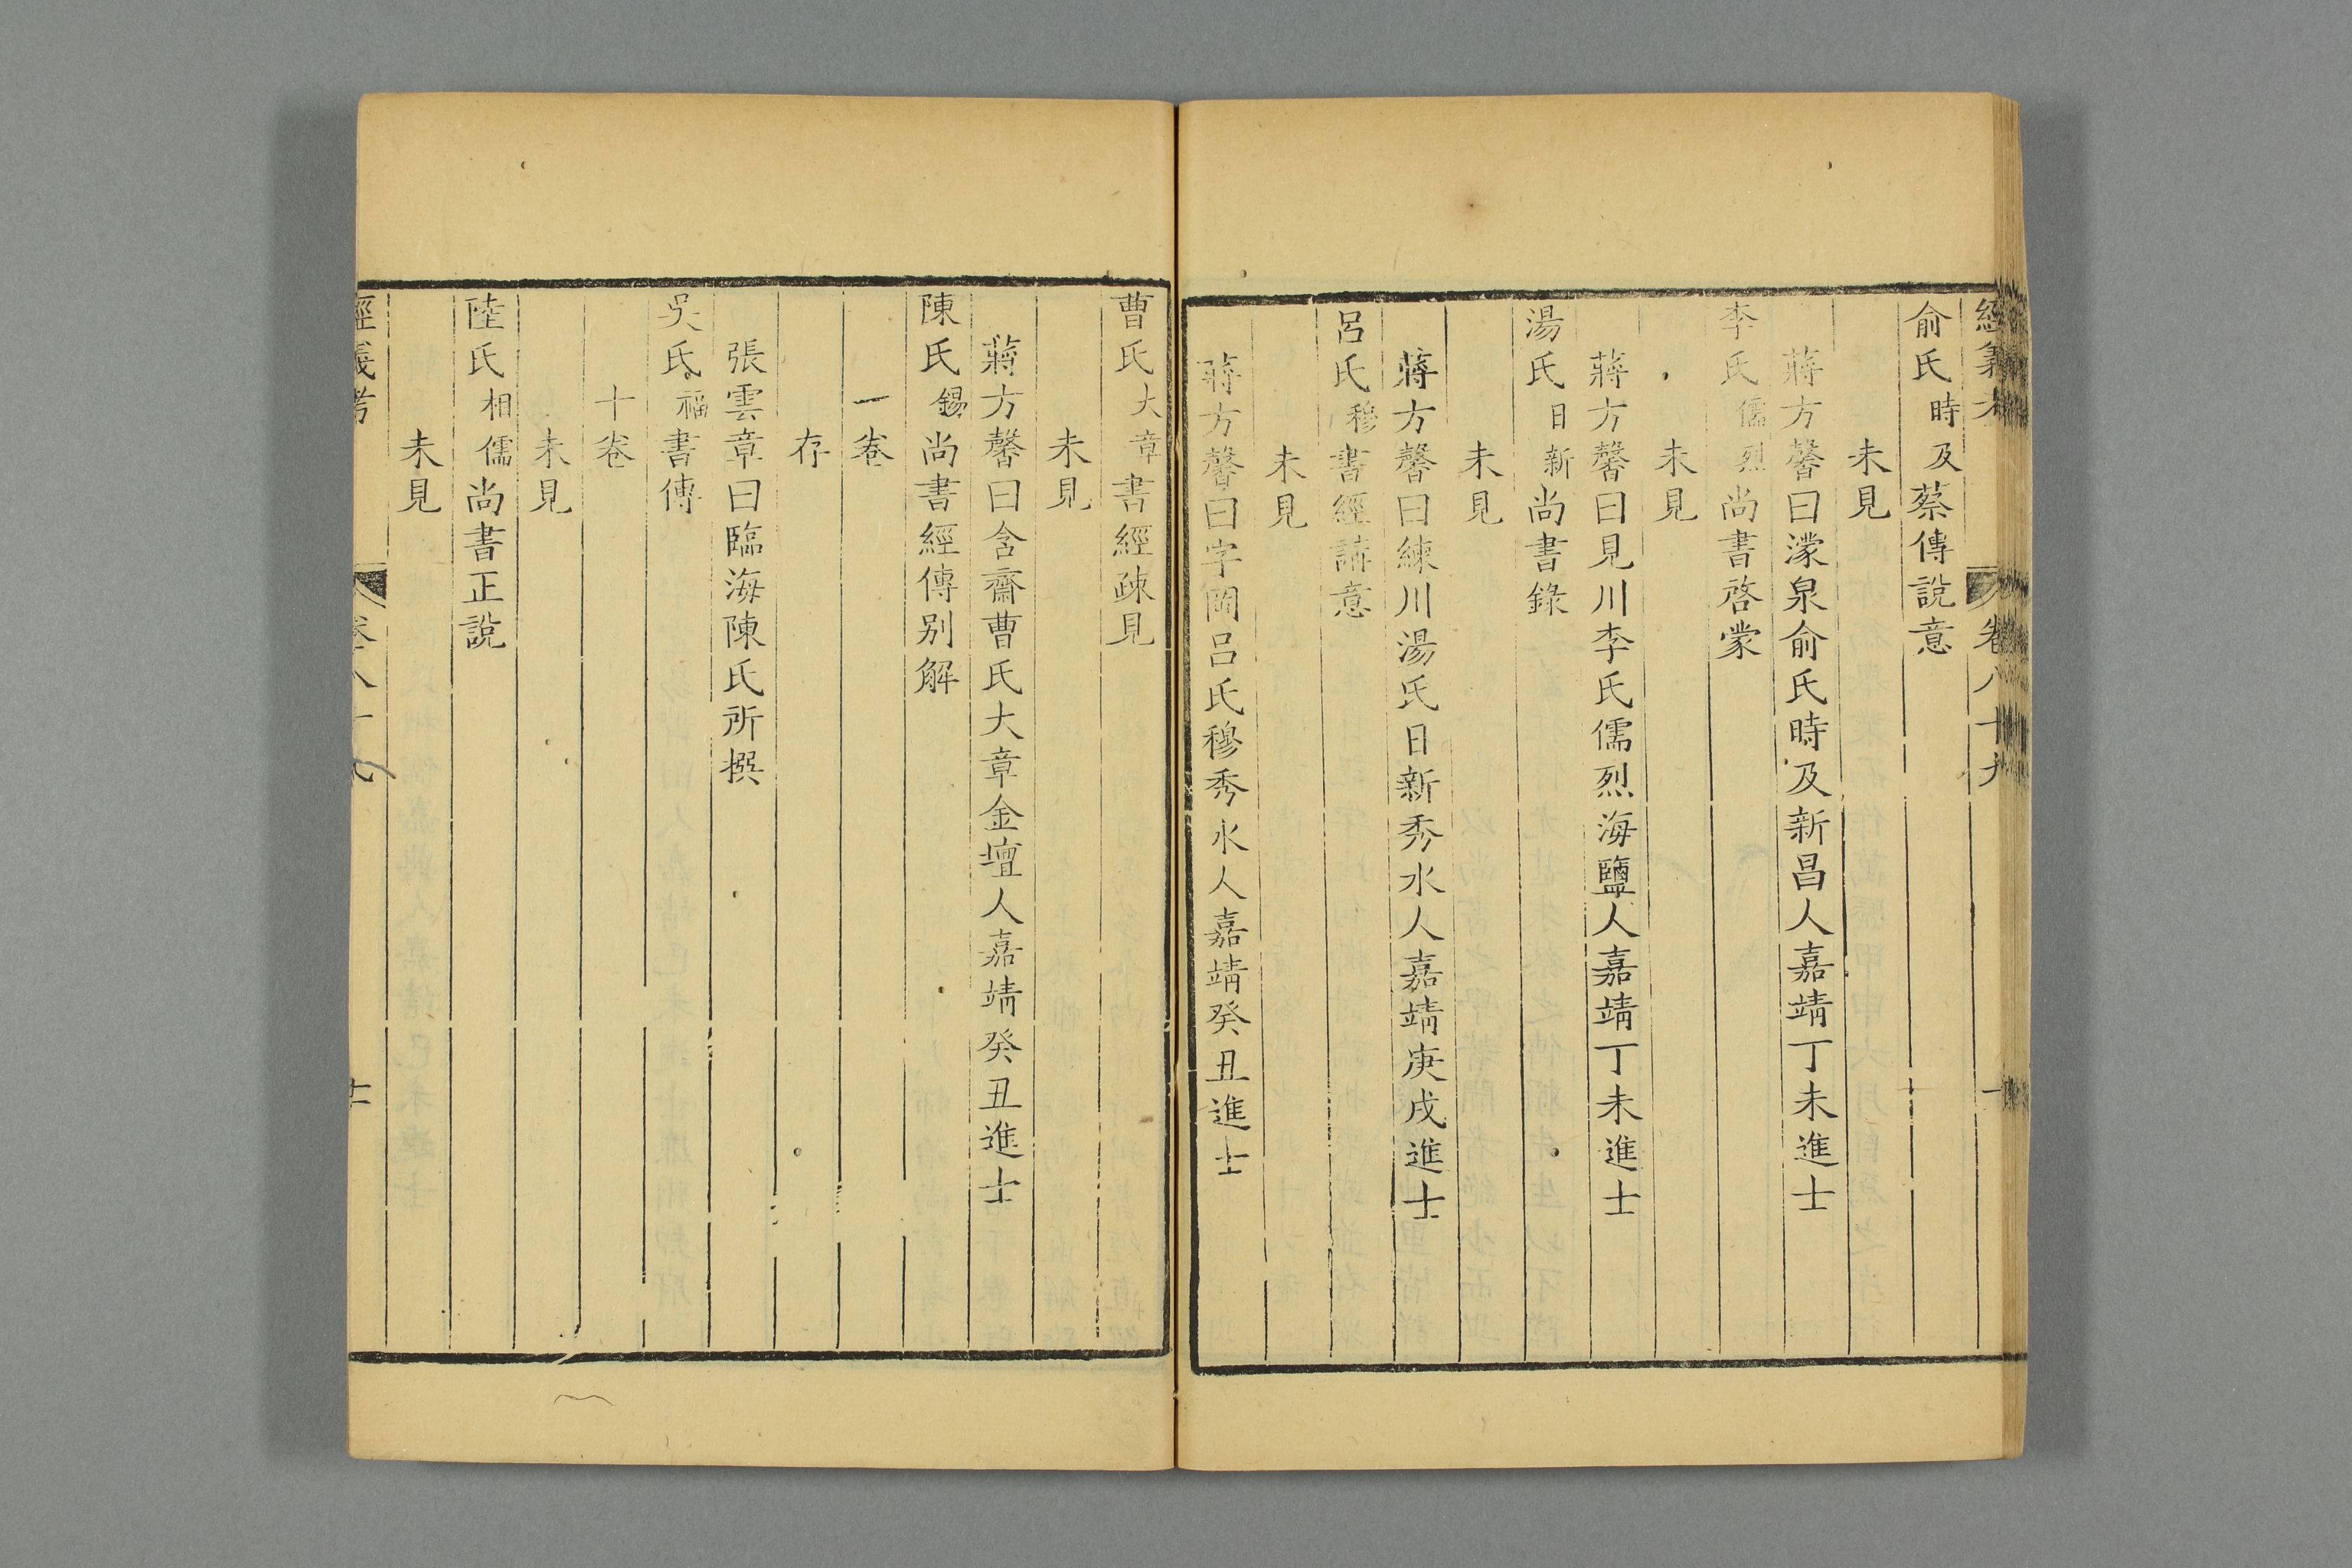 經義考 卷八十九 十
俞氏時及蔡傳說意
未見
蔣方馨曰濛泉俞氏時及新昌人嘉靖丁未進士
李氏儒烈尚書啓蒙
未見
蔣方馨曰見川李氏儒烈海鹽人嘉靖丁未進士
湯氏日新尚書錄
未見
蔣方馨曰練川湯氏日新秀水人嘉靖庚戌進士
呂氏穆書經講意
未見
蔣方馨曰字岡呂氏穆秀水人嘉靖癸丑進士
曹氏大章書經疎見
未見
蔣方馨曰含齋曹氏大章金壇人嘉靖癸丑進士
陳氏錫尚書經傳别解
一卷
存
張雲章曰臨海陳氏所撰
吳氏福書傳
十卷
未見
陸氏相儒尚書正說
未見
經義考 卷八十九